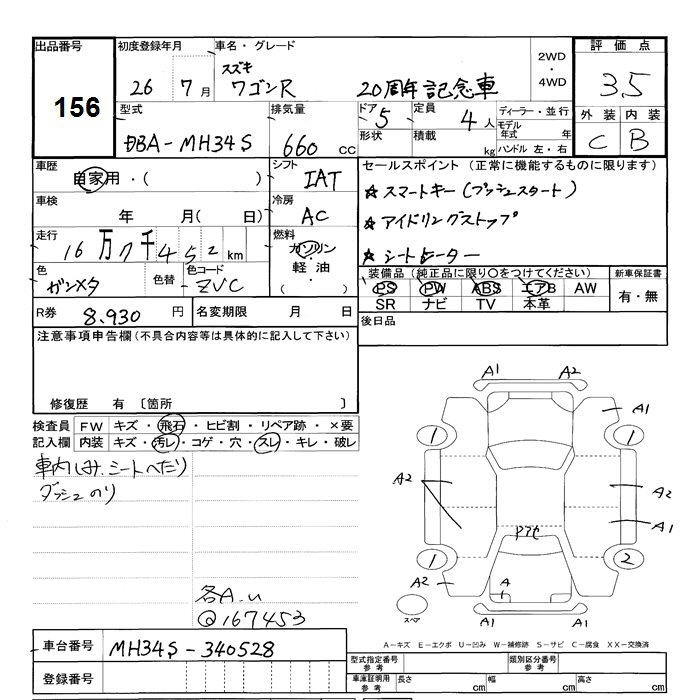 出品番号
156
初度登録年月
26年 7月
車名・グレード
スズキ
ワゴンR 20周年記念車
2WD
・
4WD
評価点
3.5
外装 内装
C B
型式
DBA-MH34S
排気量
660 cc
ドア 5
形状
定員 4人
積載 kg
ディーラー・並行
モデル年式 年
ハンドル 左・右
車歴
自家用・( )
シフト
IAT
車検
年 月( 日)
冷房
AC
走行
16万7千452km
燃料
ガソリン
軽油・
( )
色
ガンメタ
色替
色コード
ZVC
セールスポイント (正常に機能するものに限ります)
☆スマートキー(プッシュスタート)
☆アイドリングストップ
☆シートヒーター
装備品(純正品に限り○をつけてください)
PS PW ABS エアB AW
SR ナビ TV 本革
新車保証書
有・無
R券 8,930 円
名変期限 月 日
後日品
注意事項申告欄(不具合内容等は具体的に記入して下さい)
修復歴 有 〔箇所 〕
検査員記入欄
FW キズ・飛石・ヒビ割・リペア跡・×要
内装 キズ・汚レ・コゲ・穴・スレ・キレ・破レ
車内しみ、シートへたり
ダッシュのり
各A.u
@167453
A1 A2
A1
1 1
A2
A2
A1
Pアセ
1 2
A2
A
スペア
A1 A1
A-キズ E-エクボ U-凹み W-補修跡 S-サビ C-腐食 XX-交換済
車台番号 MH34S-340528
登録番号
型式指定番号参考
類別区分番号参考
車庫証明用参考
長さ cm 幅 cm 高さ cm